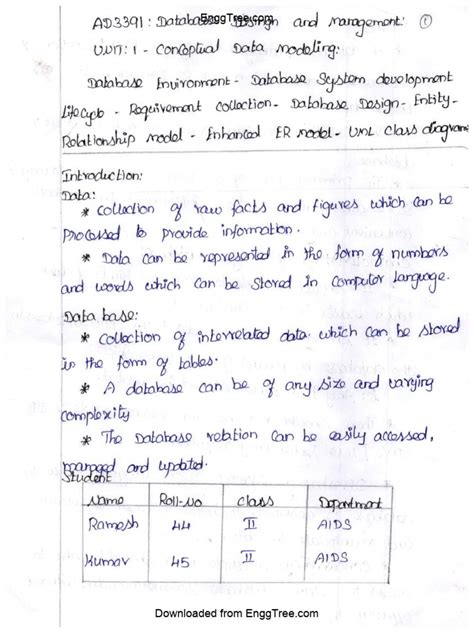 EnggTree.com
AD3391: Database Design and Management: ①
UNIT: 1 - Conceptual Data Modeling:
Database Environment - Database System development
Lifecycle - Requirement collection - Database Design - Entity-
Relationship model - Enhanced ER model - UML class diagrams
Introduction:
Data:
* Collection of raw facts and figures which can be
processed to provide information.
* Data can be represented in the form of numbers
and words which can be stored in computer language.
Data base:
* Collection of interrelated data which can be stored
in the form of tables.
* A database can be of any size and varying
complexity
* The Database relation can be easily accessed,
managed and updated.
Student
Name Roll-No class Department
Ramesh 44 II AIDS
Kumar 45 II AIDS
Downloaded from EnggTree.com